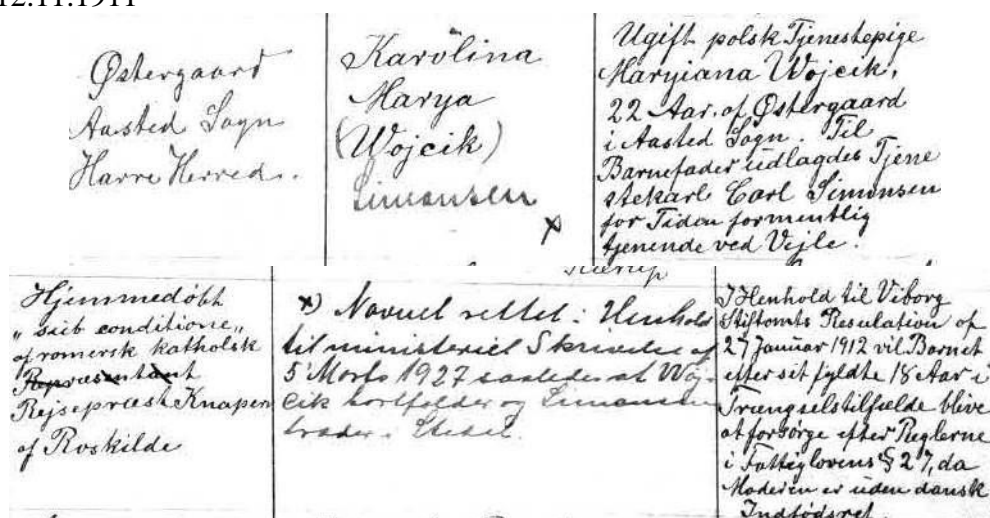 12.11.1911
Østergaard
Aasted Sogn
Harre Herred.
Karolina
Marya
(Wojcik)
Simonsen
x
Ugift polsk Tjenestepige
Maryiana Wojcik,
22 Aar, af Østergaard
i Aasted Sogn. Til
Barnefader udlagdes Tjene
stekarl Carl Simonsen
for Tiden formentlig
tjenende ved Vejle.
Hjemmedøbt
"sub conditione"
af romersk katholsk
Repræsentant
Rejsepræst Knapen
af Roskilde
x) Navnet rettet i Henhold
til ministeriel Skrivelse af
5 Marts 1927 saaledes at Woj-
cik bortfalder og Simonsen
træder i Stedet.
I Henhold til Viborg
Stiftamts Resolution af
27 Januar 1912 vil Barnet
efter sit fyldte 18 Aar i
Trangstilfælde blive
at forsørge efter Reglerne
i Fattiglovens § 27, da
Moderen er uden dansk
Indfødsret.